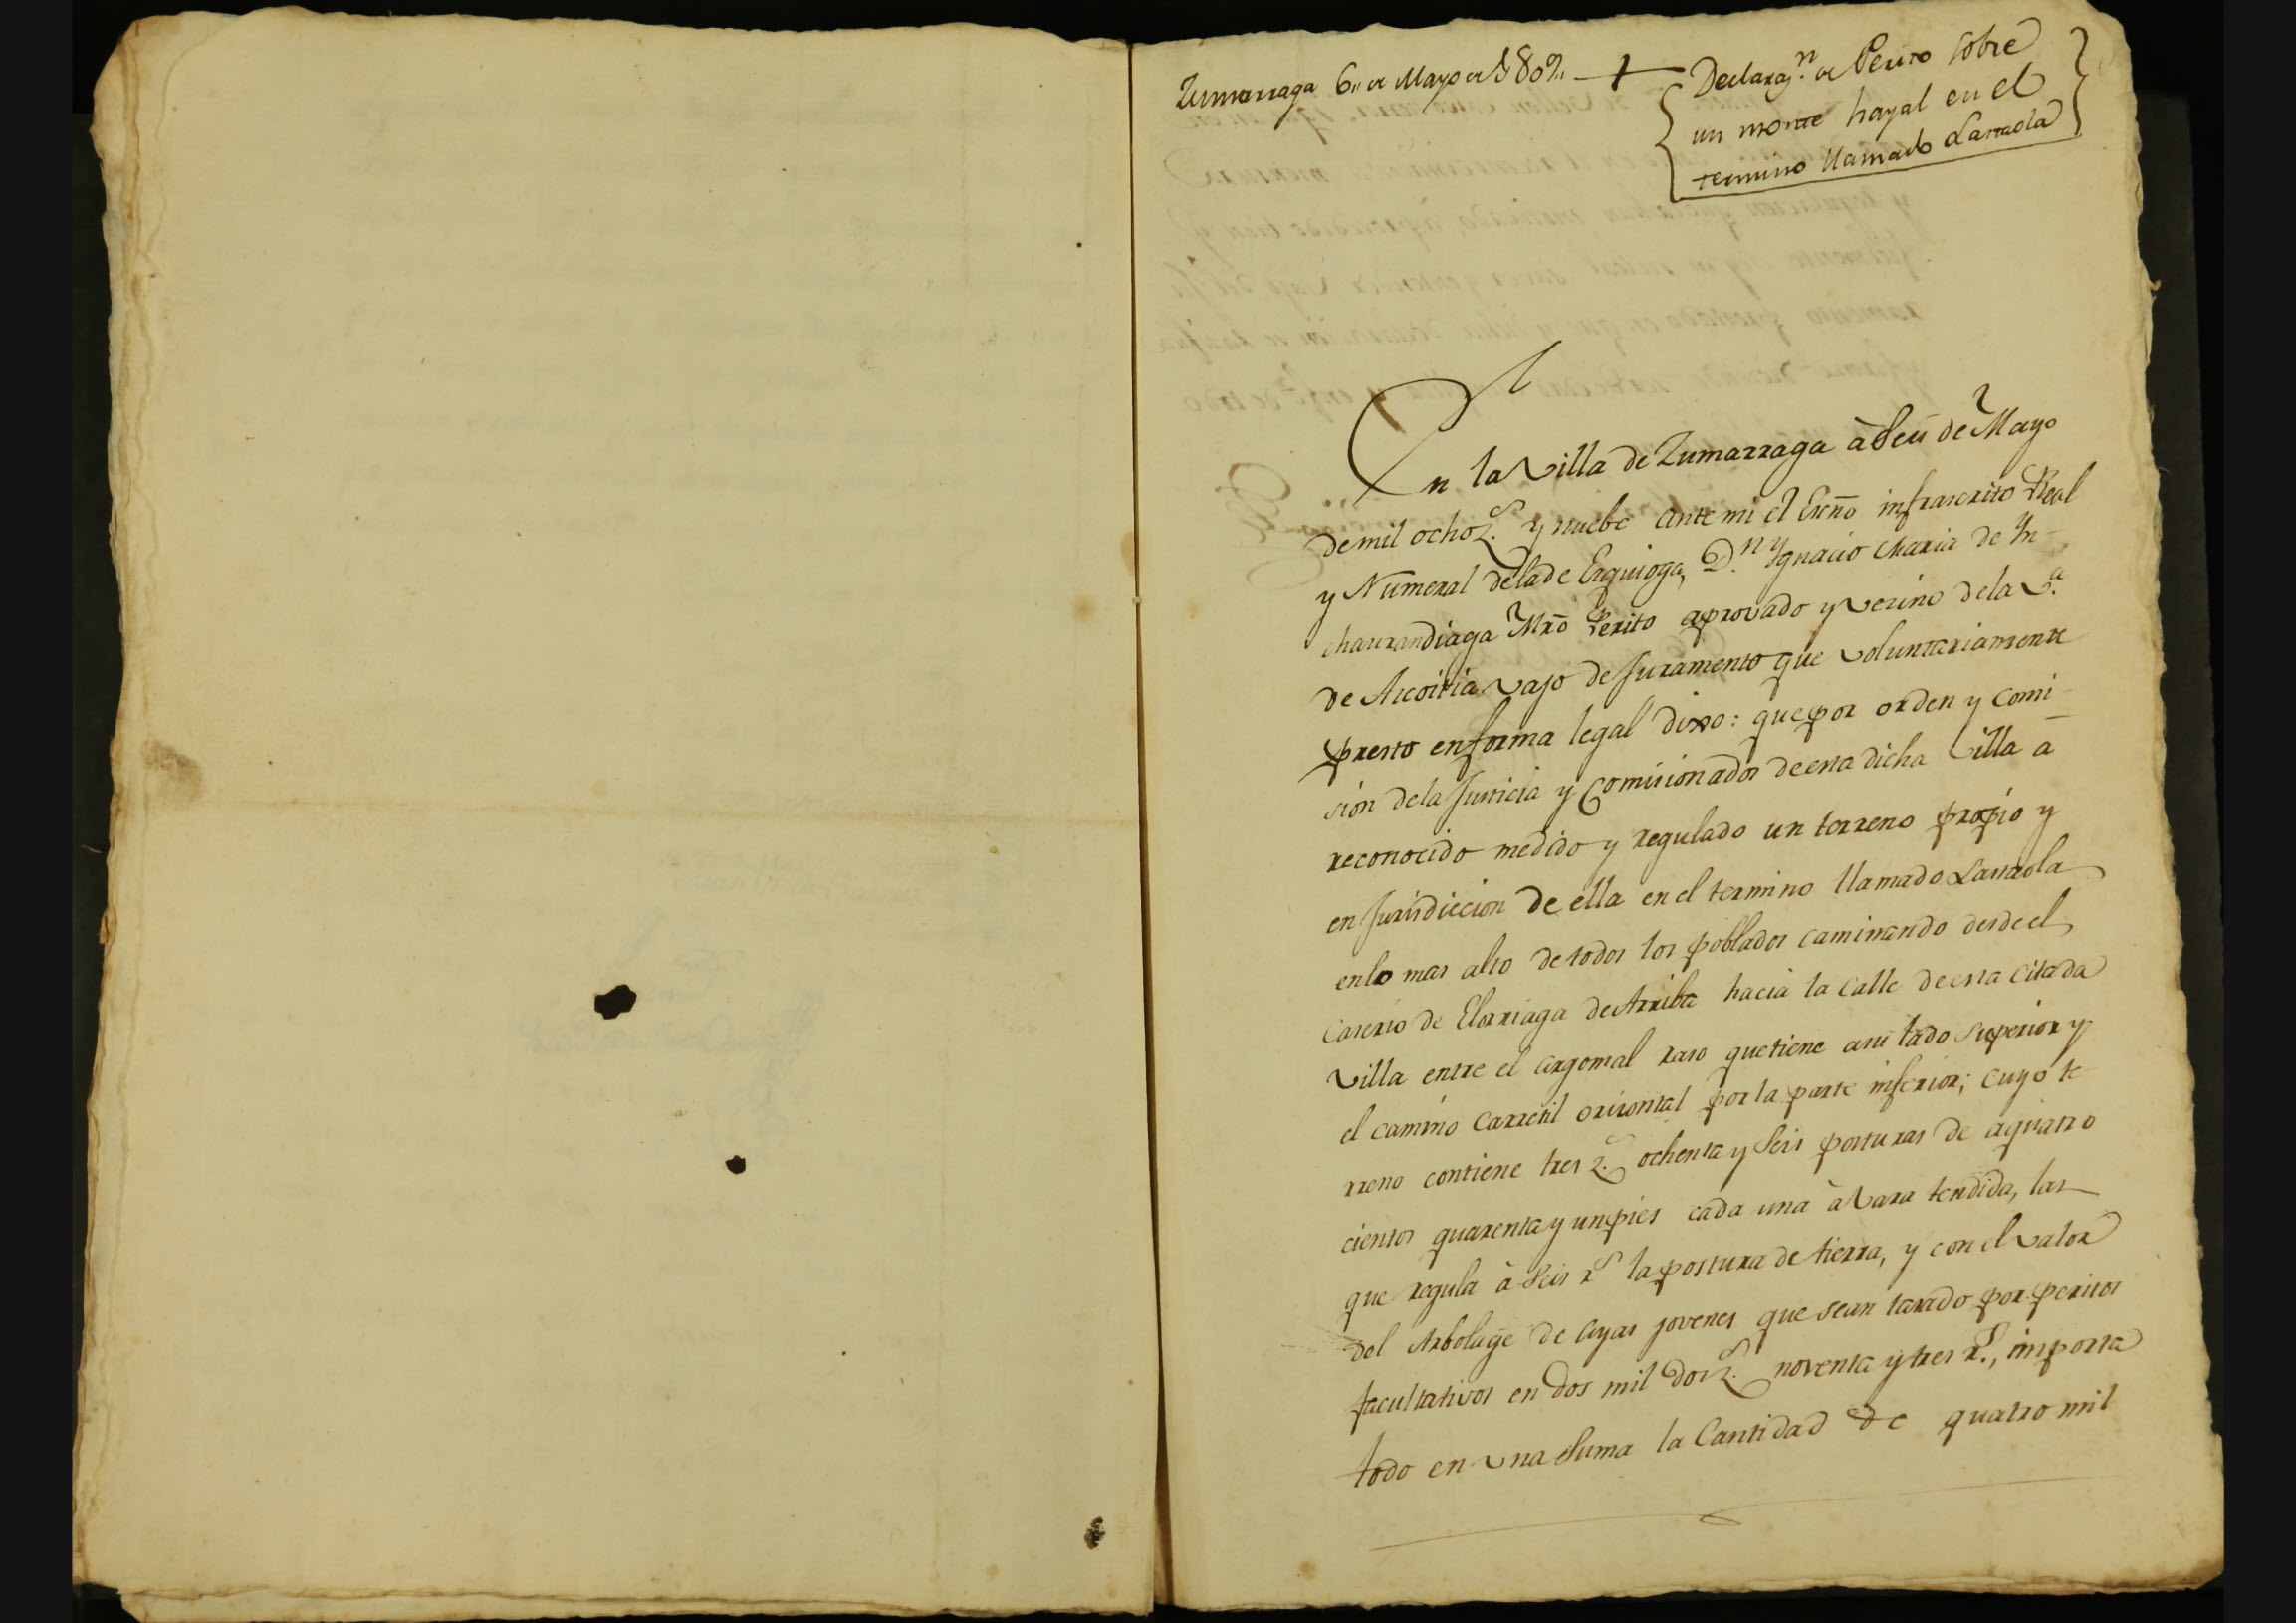 Zumarraga 6,, de Mayo de 1809,, +
Declaraz.n de Perito sobre
un monte hayal en el
termino llamado Larraola
En la Villa de Zumarraga à Seis de Mayo
de mil ochoz.s y nuebe ante mi el Esrño infrascrito Real
y Numeral dela de Ezquioga, D.n Ygnacio Maria de Yn-
chaurandiaga Mrõ Perito aprovado y vecino dela V.a
de Azcoitia vajo de Juramento que voluntariamente
presto en forma legal dixo: que por orden y comi-
sion dela Justicia y Comisionados de esta dicha Villa a
reconocido medido y regulado un terreno propio y
en Jurisdiccion de ella en el termino llamado Larraola
en lo mas alto de todos los poblados caminando desde el
Caserio de Elorriaga de Arriba hacia la Calle de esta citada
Villa entre el argomal raso que tiene asu lado Superior y
el camino Carretil orizontal por la parte inferior; cuyo te-
rreno contiene tres z.s ochenta y Seis posturas de aquatro
cientos quarenta y un pies cada una à Vara tendida, las
que regula à Seis r.s la postura de tierra, y con el valor
del Arbolage de Ayas jovenes que sean tasado por peritos
facultativos en dos mil dosz.s noventa y tres r.s, importa
todo en una Suma la Cantidad de quatro mil